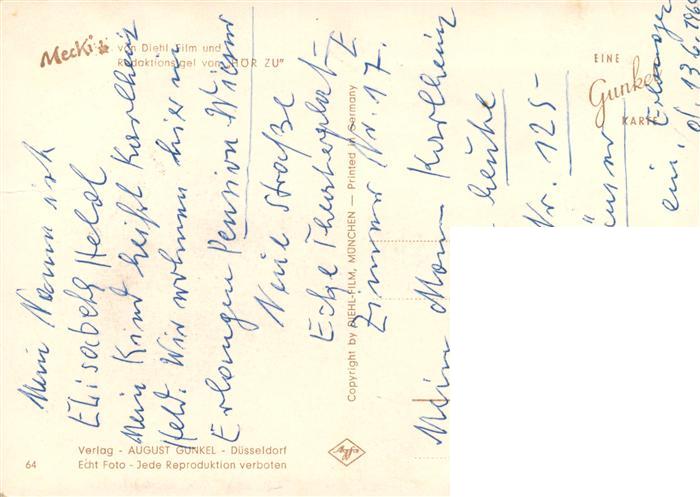 Mecki von Diehl Film und
Redaktionsigel von "HÖR ZU"
EINE
Gunkel
KARTE
Copyright by DIEHL-FILM, MÜNCHEN — Printed in Germany
Verlag - AUGUST GUNKEL - Düsseldorf
Echt Foto - Jede Reproduktion verboten
64
Agfa
Mein Name ist
Elisabeth Held
Mein Kind heißt Karlheinz
Held. Wir wohnen hier in
Erlangen Pension Wiener
Neue Straße
Ecke Theaterplatz
Zimmer Nr. 17.
Mein Mann Karlheinz
heute
Nr. 125-
ein.
Erlangen
13.6.1969